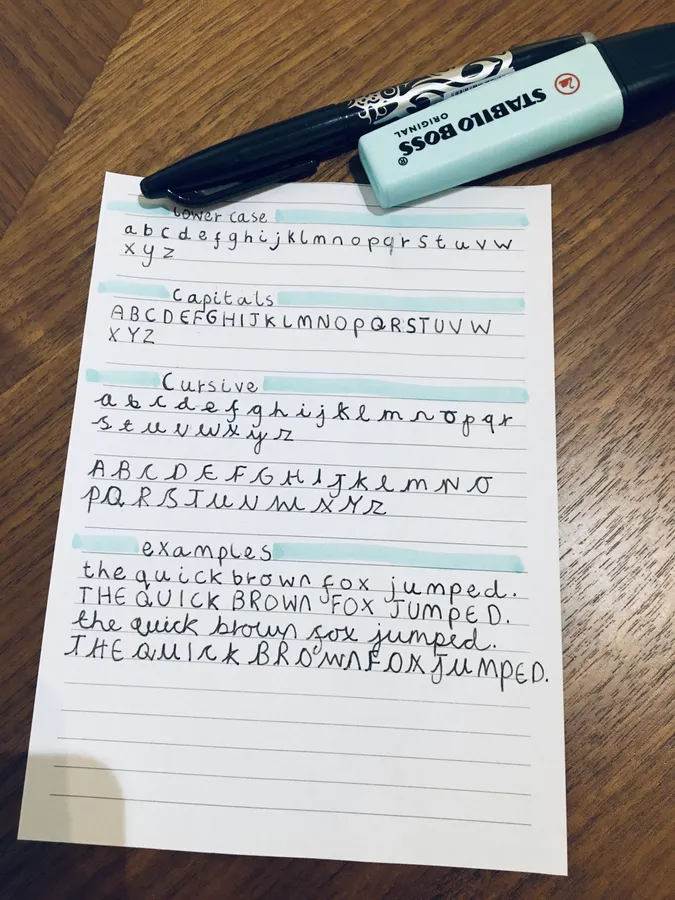 STABILO BOSS®
ORIGINAL
lower case
a b c d e f g h i j k l m n o p q r s t u v w
x y z
Capitals
A B C D E F G H I J K L M N O P Q R S T U V W
X Y Z
Cursive
a b c d e f g h i j k l m n o p q r
s t u v w x y z
A B C D E F G H I J K L M N O
P Q R S T U V W X Y Z
examples
the quick brown fox jumped.
THE QUICK BROWN FOX JUMPED.
the quick brown fox jumped.
THE QUICK BROWN FOX JUMPED.